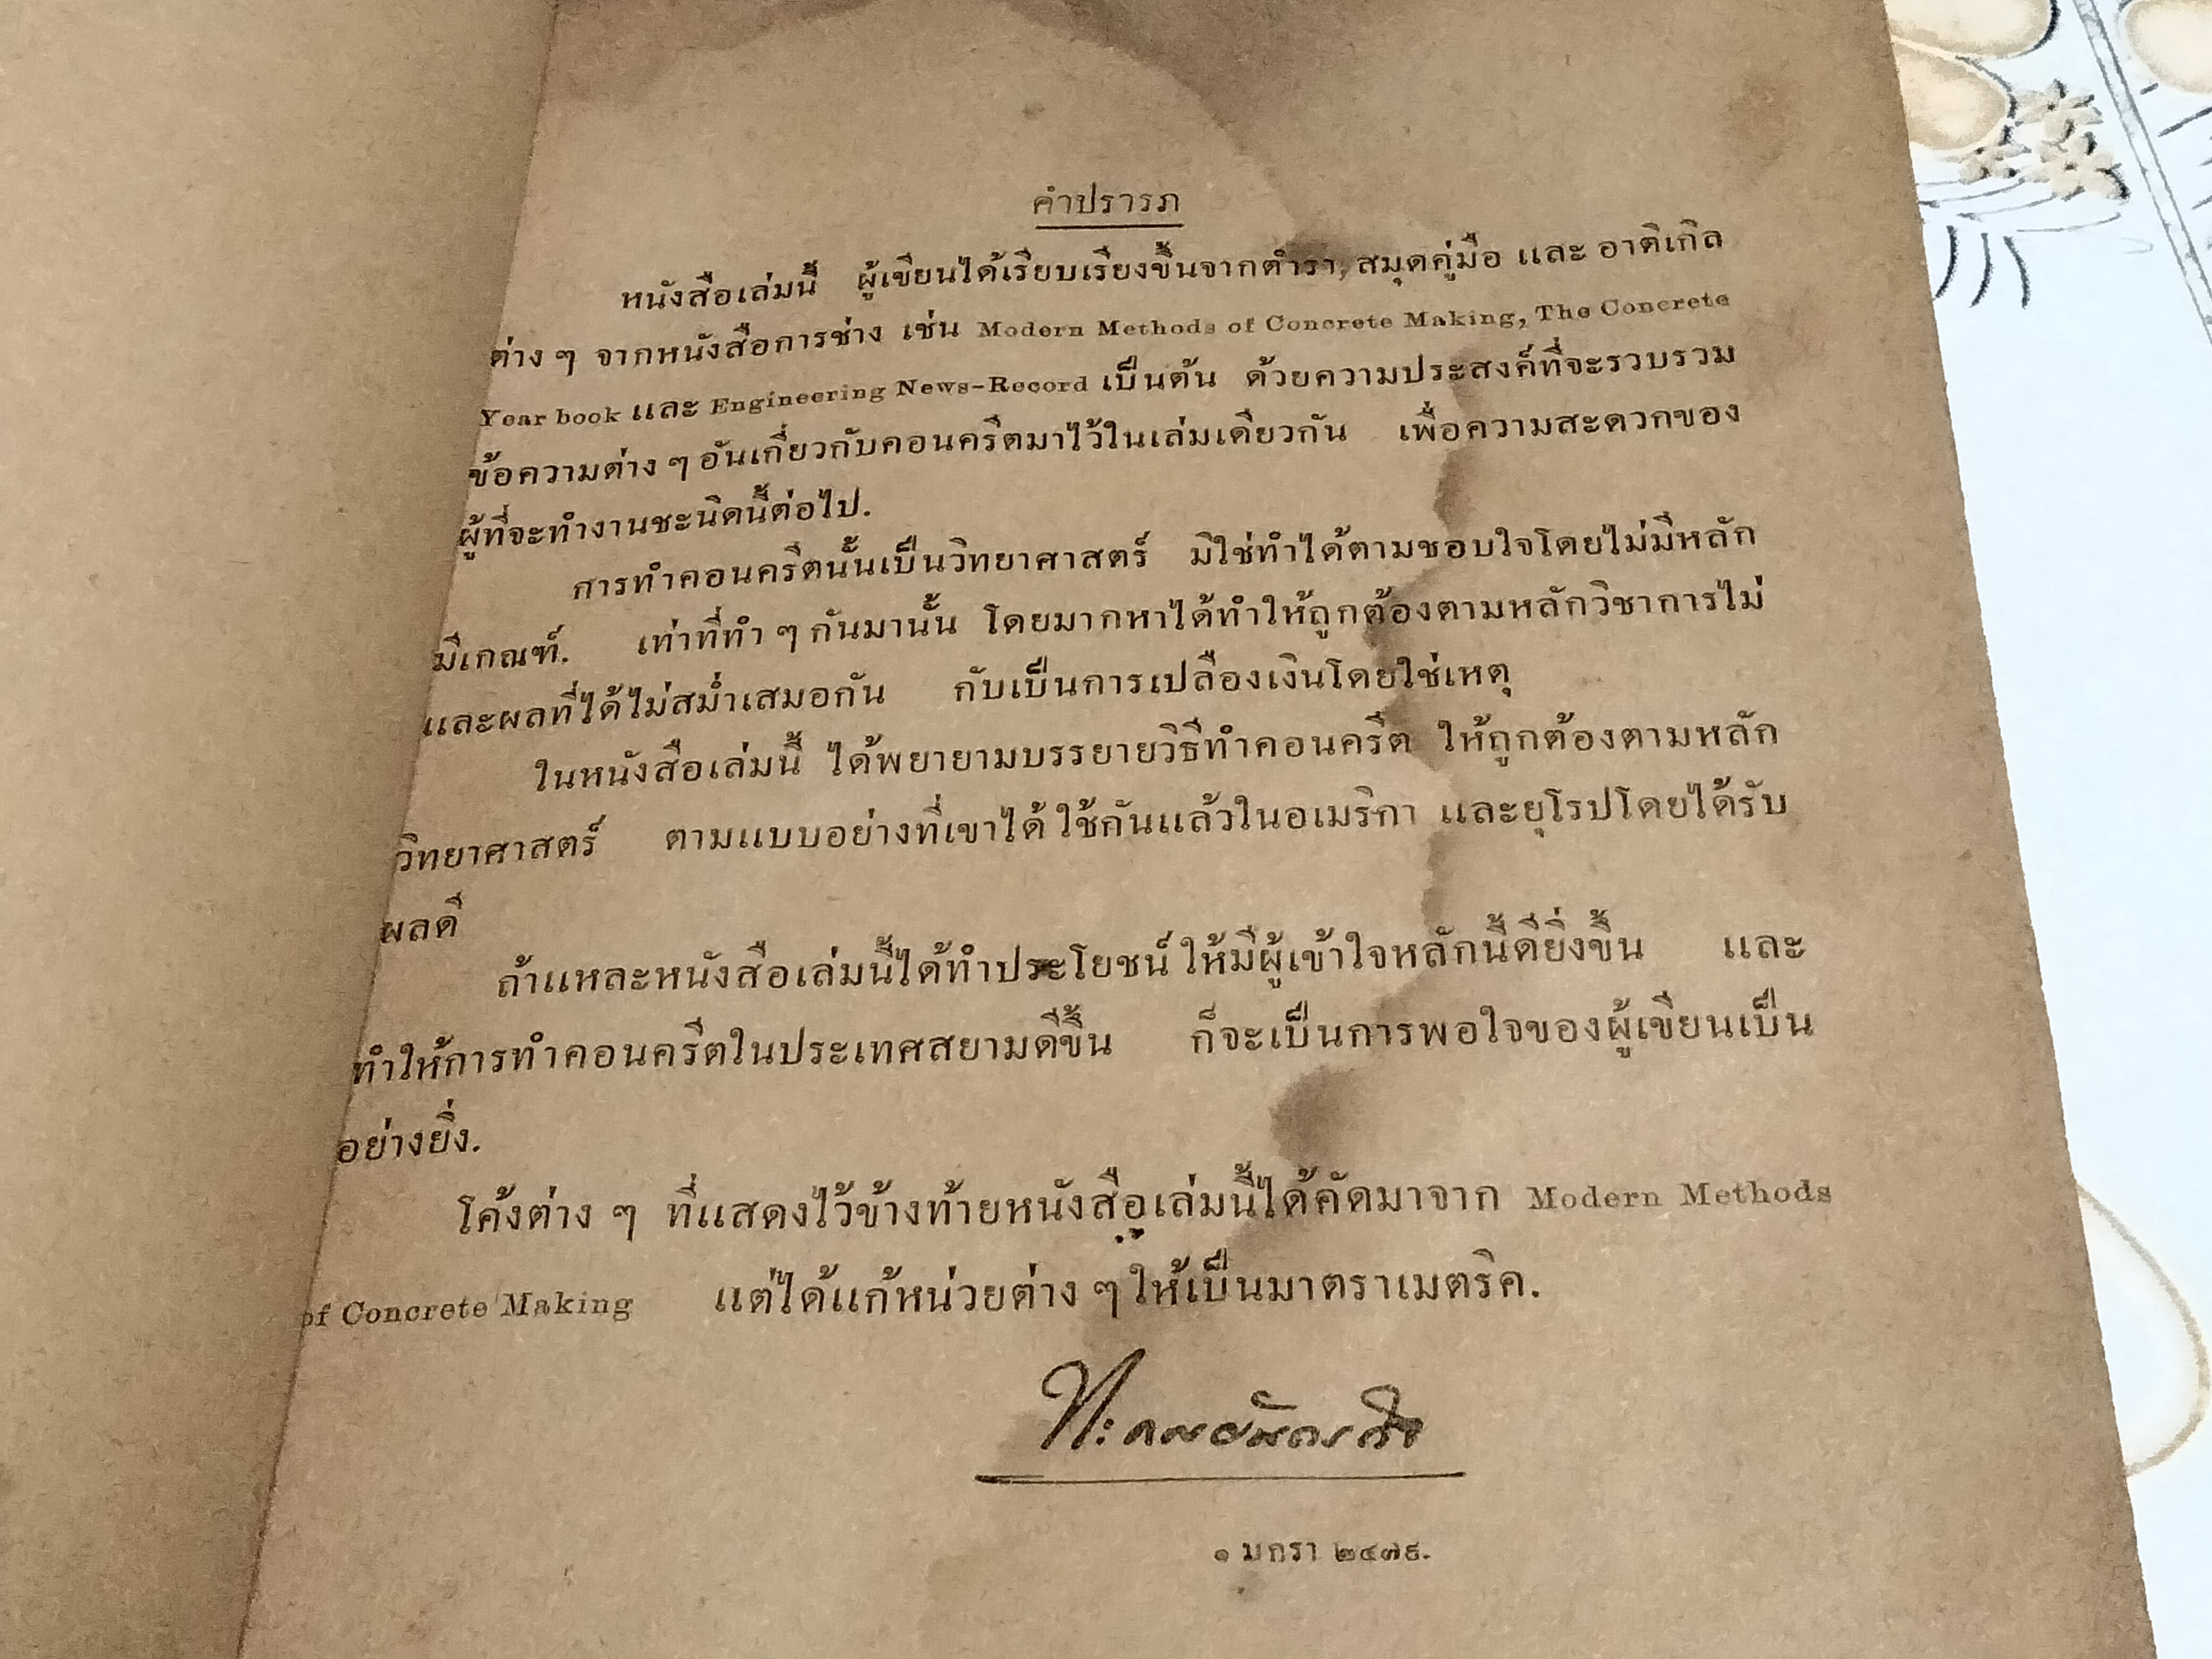 คำปรารภ
หนังสือเล่มนี้ ผู้เขียนได้เรียบเรียงขึ้นจากตำรา, สมุดคู่มือ และ อาติเกิล
ต่าง ๆ จากหนังสือการช่าง เช่น Modern Methods of Concrete Making, The Concrete
Year book และ Engineering News-Record เป็นต้น ด้วยความประสงค์ที่จะรวบรวม
ข้อความต่าง ๆ อันเกี่ยวกับคอนครีตมาไว้ในเล่มเดียวกัน เพื่อความสะดวกของ
ผู้ที่จะทำงานชะนิดนี้ต่อไป.
การทำคอนครีตนั้นเป็นวิทยาศาสตร์ มิใช่ทำได้ตามชอบใจโดยไม่มีหลัก
มีเกณฑ์. เท่าที่ทำ ๆ กันมานั้น โดยมากหาได้ทำให้ถูกต้องตามหลักวิชาการไม่
และผลที่ได้ไม่สม่ำเสมอกัน กับเป็นการเปลืองเงินโดยใช่เหตุ
ในหนังสือเล่มนี้ ได้พยายามบรรยายวิธีทำคอนครีต ให้ถูกต้องตามหลัก
วิทยาศาสตร์ ตามแบบอย่างที่เขาได้ ใช้กันแล้วในอเมริกา และยุโรปโดยได้รับ
ผลดี
ถ้าแหละหนังสือเล่มนี้ได้ทำประโยชน์ ให้มีผู้เข้าใจหลักนี้ดียิ่งขึ้น และ
ทำให้การทำคอนครีตในประเทศสยามดีขึ้น ก็จะเป็นการพอใจของผู้เขียนเป็น
อย่างยิ่ง.
โค้งต่าง ๆ ที่แสดงไว้ข้างท้ายหนังสือเล่มนี้ได้คัดมาจาก Modern Methods
of Concrete Making แต่ได้แก้หน่วยต่าง ๆ ให้เป็นมาตราเมตริค.
๑ มกรา ๒๔๗๙.